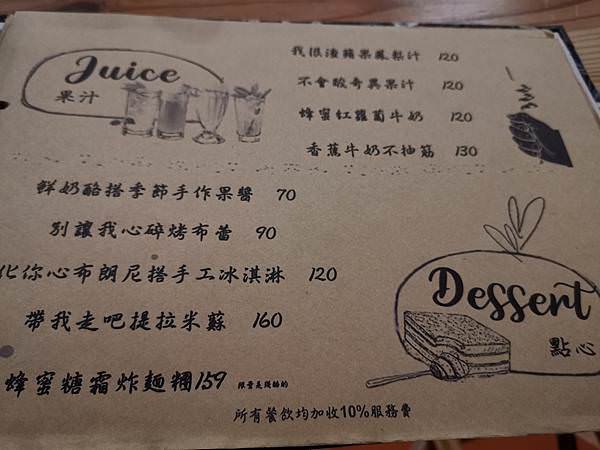 Juice
果汁
我很渣蘋果鳳梨汁 120
不會酸奇異果汁 120
蜂蜜紅蘿蔔牛奶 120
香蕉牛奶不抽筋 130
鮮奶酪搭季節手作果醬 70
別讓我心碎烤布蕾 90
化你心布朗尼搭手工冰淇淋 120
帶我走吧提拉米蘇 160
蜂蜜糖霜炸麵糰 159
Dessert
點心
所有餐飲均加收10%服務費